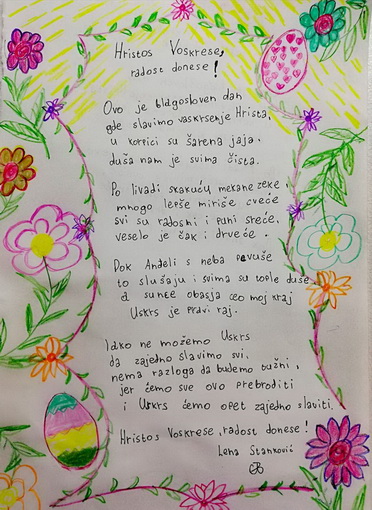 Hristos Voskrese,
radost donese!
Ovo je blagosloven dan
gde slavimo vaskrsenje Hrista,
u korpici su šarena jaja,
duša nam je svima čista.
Po livadi skakuću mekane zeke,
mnogo lepše miriše cveće
svi su radosni i puni sreće,
veselo je čak i drveće.
Dok Anđeli s neba pevuše
to slušaju i svima su tople duše
a sunce obasja ceo moj kraj
Uskrs je pravi raj.
Iako ne možemo Uskrs
da zajedno slavimo svi,
nema razloga da budemo tužni,
jer ćemo sve ovo prebroditi
i Uskrs ćemo opet zajedno slaviti.
Hristos Voskrese, radost donese!
Lena Stanković